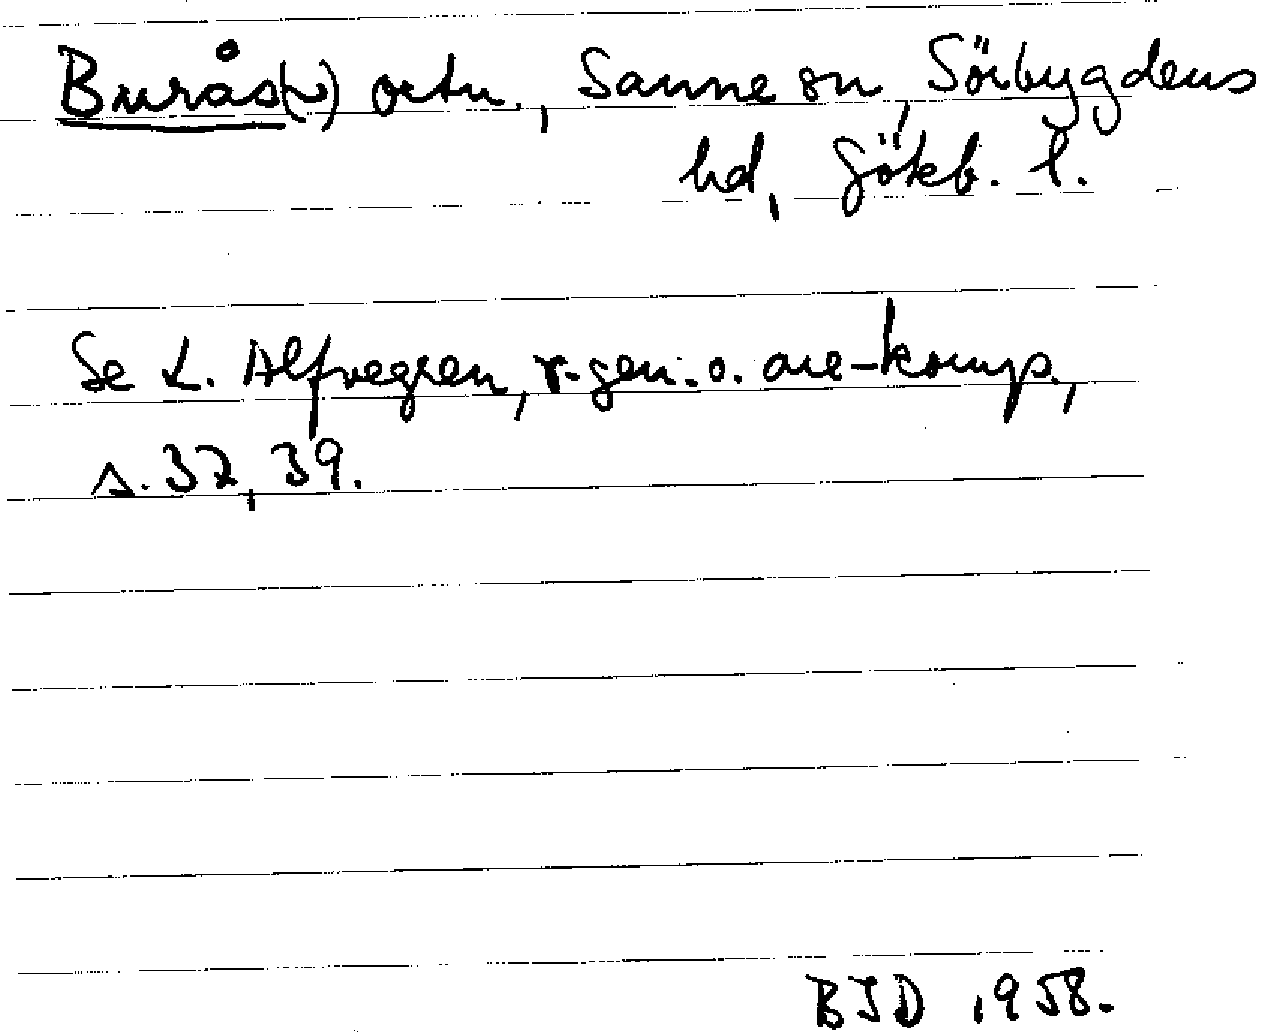 Burås(-) ortn., Sanne sn, Sörbygdens
hd, Göteb. l.
Se L. Alfvegren, r-gen. o. are-komp.,
s. 37, 39.
BJD 1958.